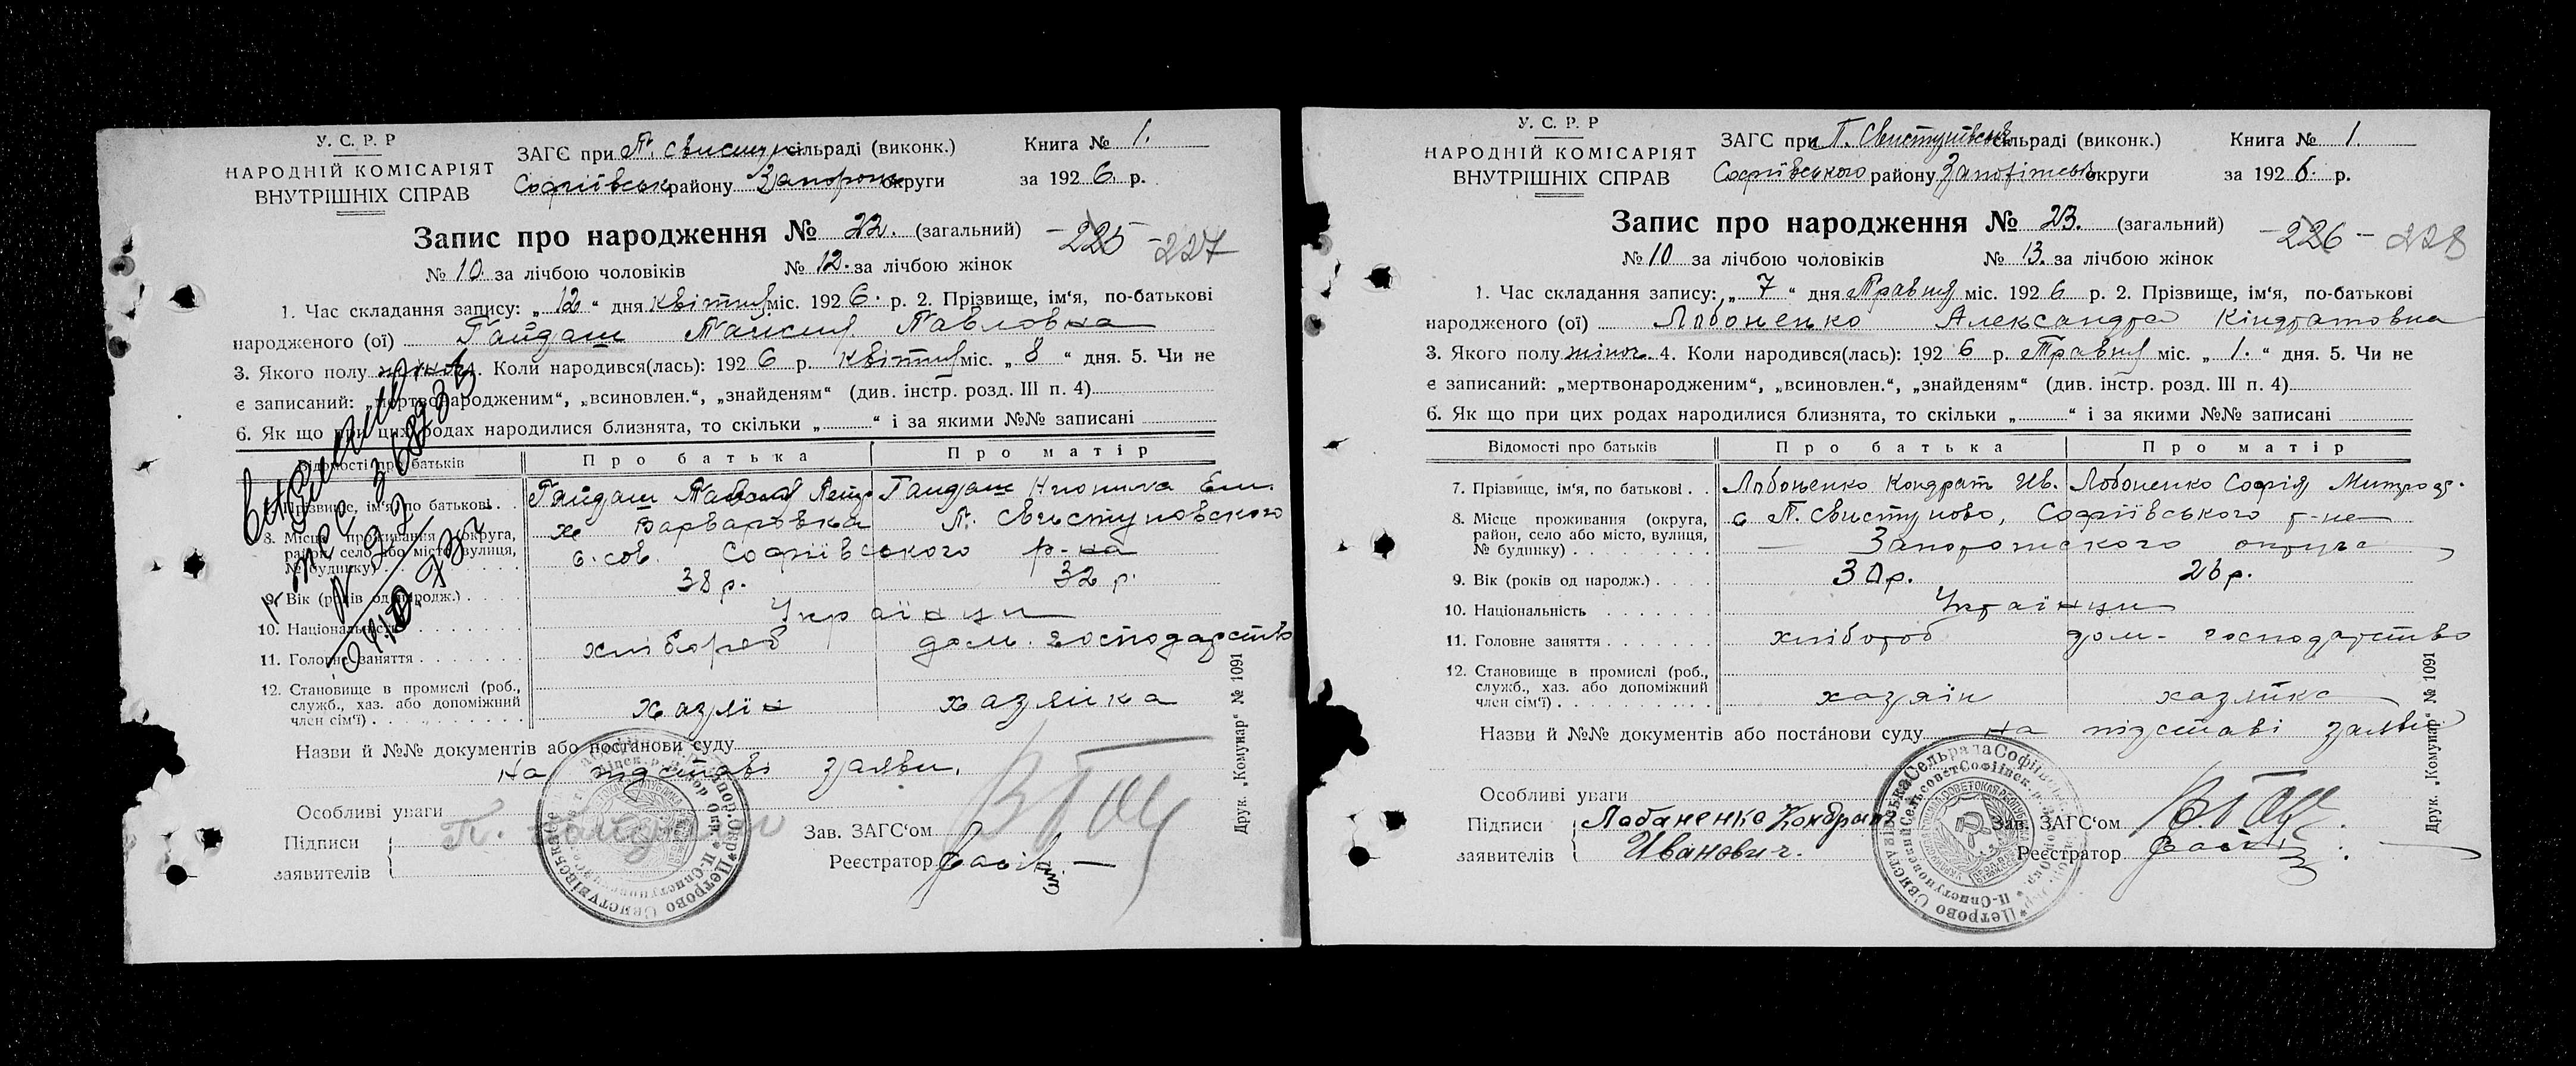 У. С. Р. Р
НАРОДНІЙ КОМІСАРІЯТ
ВНУТРІШНІХ СПРАВ
ЗАГС при П. Свистун. сільраді (виконк.)
Софіївськ району Запорож округи
Книга № 1.
за 1926 р.
Запис про народження № 22. (загальний)
-225 -227
№ 10. за лічбою чоловіків № 12. за лічбою жінок
1. Час складання запису: „ 12 “ дня квітня міс. 1926. р. 2. Прізвище, ім‘я, по-батькові
народженого (ої) Гайдаш Павловна
3. Якого полу жіноч. Коли народився(лась): 1926 р. квітня міс. „ 8 “ дня. 5. Чи не
є записаний: „мертвонародженим“, „всиновлен.“, „знайденям“ (див. інстр. розд. III п. 4)
6. Як що при цих родах народилися близнята, то скільки „ “ і за якими №№ записані
Відомості про батьків Про батька Про матір
7. Прізвище, ім‘я, по батькові . . Гайдаш Гайдаш
8. Місце проживання (округа, район, село або місто, вулиця, № будинку) х Варваровка П. Свистуновского
с. сов. Софіївського р-на
9. Вік (років од народж.) . . . . 38 р. 32 р.
10. Національність . . . . . . . Українци
11. Головне заняття . . . . . . . хлібороб дом. господарство
12. Становище в промислі (роб., служб., хаз. або допоміжний член сім‘ї) . . . хазяїн хазяйка
Назви й №№ документів або постанови суду
на підставі заяви.
Особливі уваги
Підписи
заявителів
П. Гайдаш
Зав. ЗАГС‘ом
Реєстратор
Друк. „Комунар“ № 1091
У. С. Р. Р
НАРОДНІЙ КОМІСАРІЯТ
ВНУТРІШНІХ СПРАВ
ЗАГС при П. Свистунівській сільраді (виконк.)
Софіївського району Запоріжськ округи
Книга № 1.
за 1926. р.
Запис про народження № 23. (загальний)
-226 - 228
№ 10 за лічбою чоловіків № 13. за лічбою жінок
1. Час складання запису: „ 7 “ дня Травня міс. 1926 р. 2. Прізвище, ім‘я, по-батькові
народженого (ої) Лобоненко Александра Кіндратовна
3. Якого полу жіноч. 4. Коли народився(лась): 1926 р. Травня міс. „ 1. “ дня. 5. Чи не
є записаний: „мертвонародженим“, „всиновлен.“, „знайденям“ (див. інстр. розд. III п. 4)
6. Як що при цих родах народилися близнята, то скільки „ “ і за якими №№ записані
Відомості про батьків Про батька Про матір
7. Прізвище, ім‘я, по батькові . . Лобоненко Кондрат Ив. Лобоненко Софія Митроф.
8. Місце проживання (округа, район, село або місто, вулиця, № будинку) с П. Свистуново, Софіївського р-на
Запорожского округа
9. Вік (років од народж.) . . . . 30 р. 26 р.
10. Національність . . . . . . . Українци
11. Головне заняття . . . . . . . хлібороб дом- господарство
12. Становище в промислі (роб., служб., хаз. або допоміжний член сім‘ї) . . . хазяїн хазяйка
Назви й №№ документів або постанови суду на підставі заяви
Особливі уваги
Підписи
заявителів
Лабаненко Кондрат
Иванович.
Зав. ЗАГС‘ом
Реєстратор
Друк. „Комунар“ № 1091